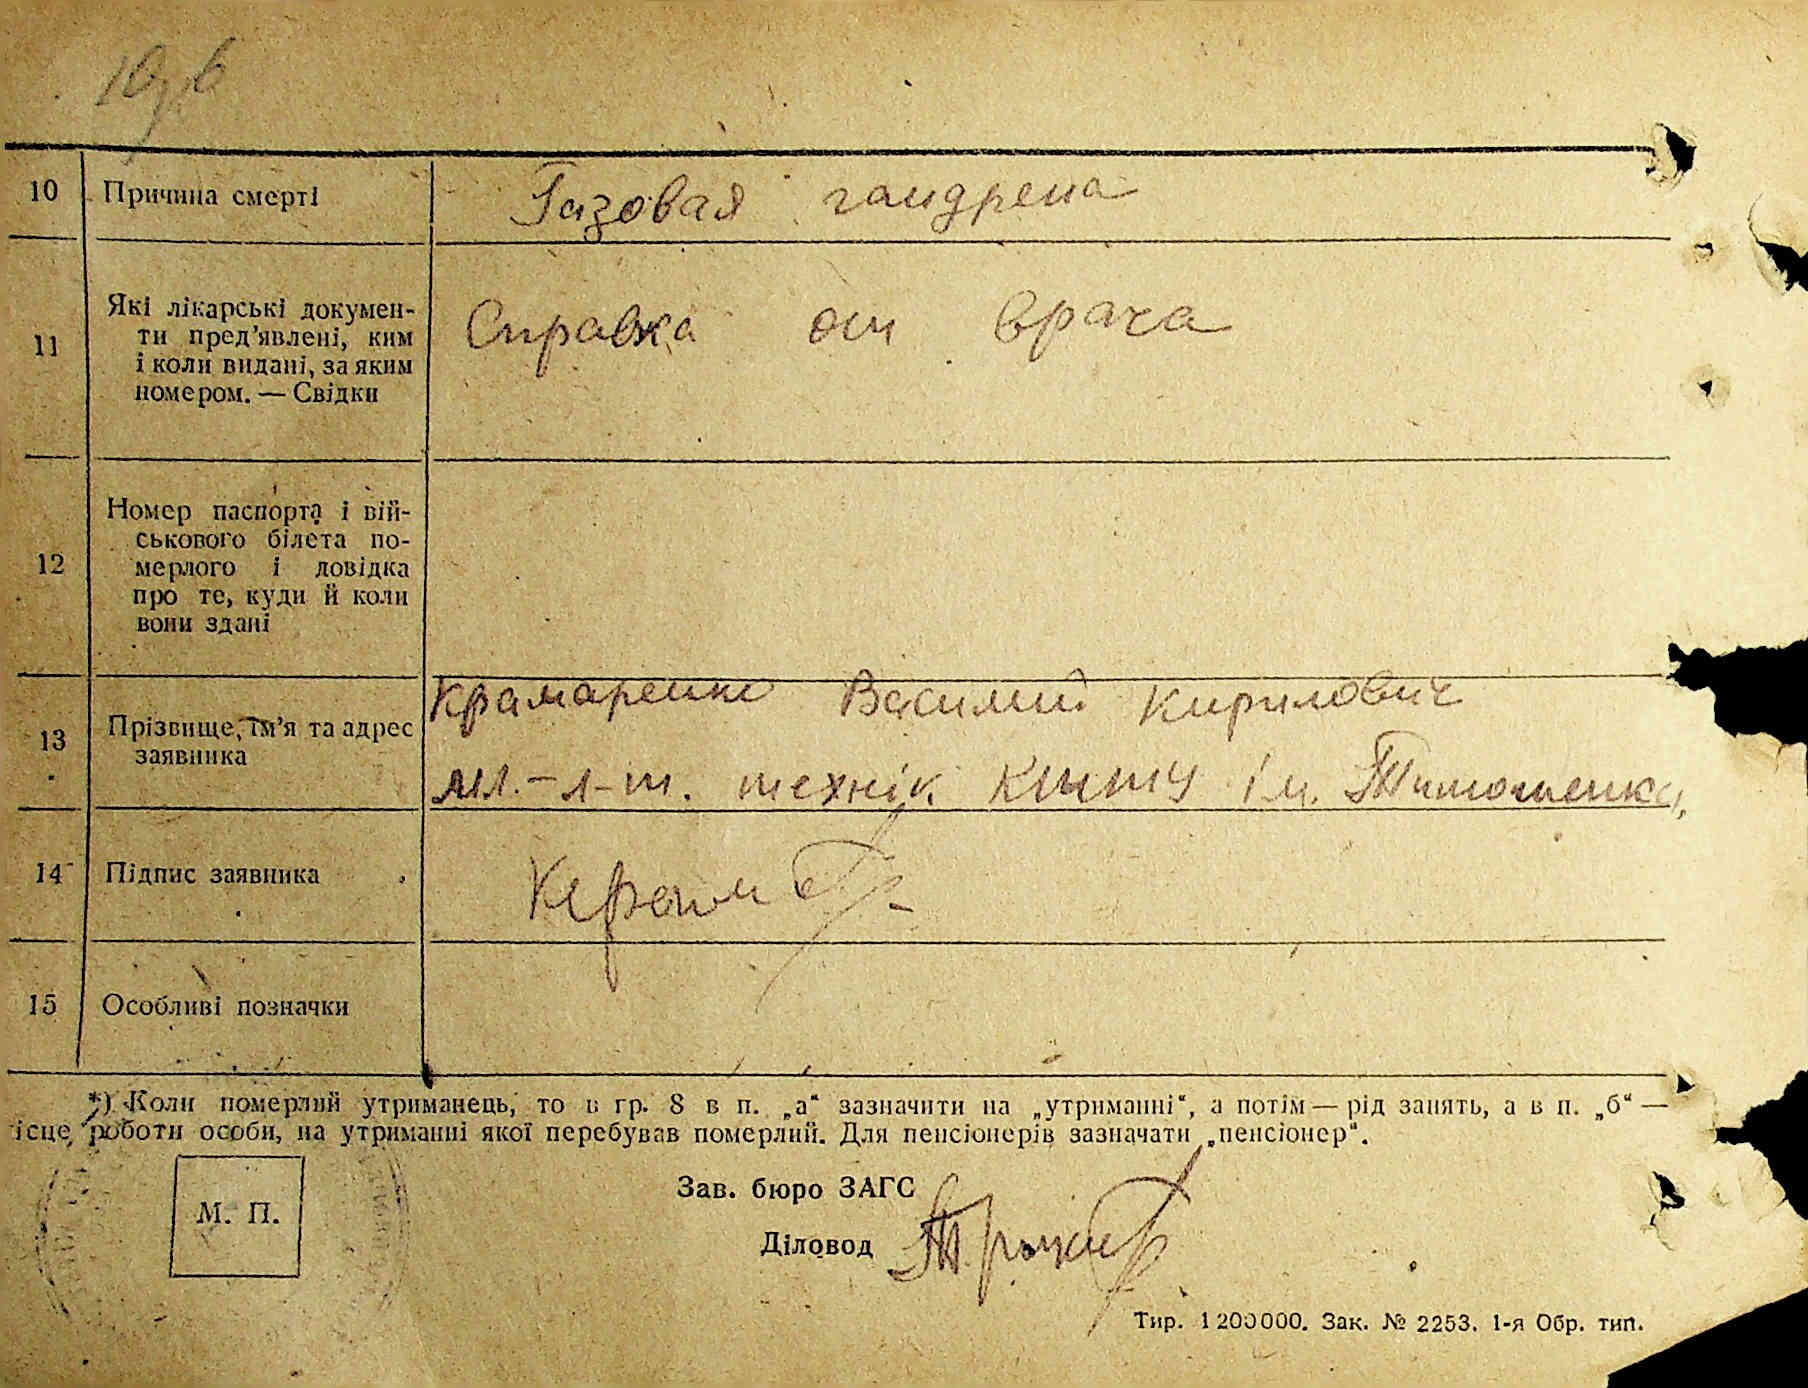 10 Причина смерті Газовая гангрена
Які лікарські докумен-
ти пред'явлені, ким
11 Справка от врача
і коли видані, за яким
номером. — Свідки
Номер паспорта і вій-
ськового білета по-
12 мерлого і довідка
про те, куди й коли
вони здані
Крамаренко Василий Кирилович
13 Прізвище, ім'я та адрес
заявника
мл.-л-т. технік КППУ ім. Тимошенка,
14 Підпис заявника
15 Особливі позначки
*) Коли померлий утриманець, то в гр. 8 в п. „а“ зазначити на „утриманні“, а потім — рід занять, а в п. „б“ —
ісце роботи особи, на утриманні якої перебував померлий. Для пенсіонерів зазначати „пенсіонер“.
М. П.
Зав. бюро ЗАГС
Діловод
Тир. 1200000. Зак. № 2253. 1-я Обр. тип.